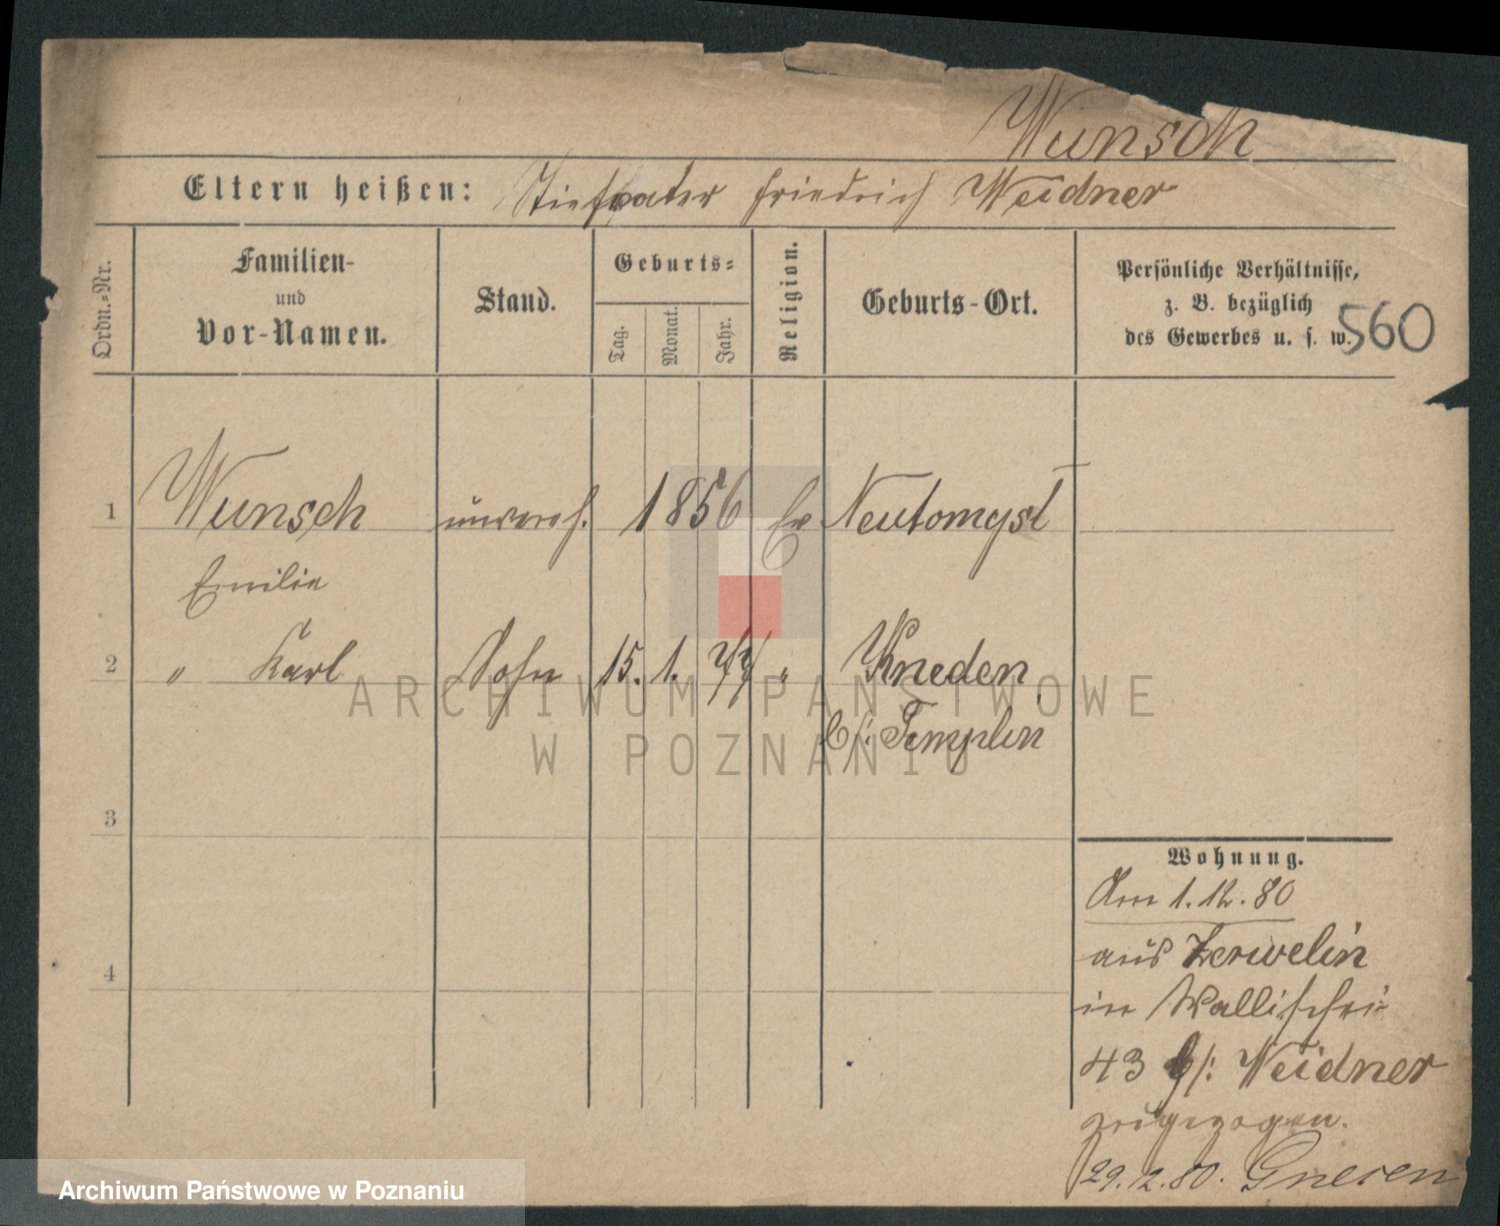 Wunsch
Eltern heißen: Stiefvater Friedrich Weidner
Ordn.-Nr.
Familien-
und
Vor-Namen.
Stand.
Geburts-
Tag.
Monat.
Jahr.
Religion.
Geburts-Ort.
Persönliche Verhältnisse,
z. B. bezüglich
des Gewerbes u. s. w.
560
1 Wunsch unvereh. 1856 Ev Neutomysl
Emilie
2 " Karl Sohn 15. 1. 77 " Kneden
b/: Templin
3
4
Wohnung.
Am 1.12.80
aus Zerwelin
in Wallischei
43 b/: Weidner
zugezogen.
29.12.80. Gnesen
ARCHIWUM PAŃSTWOWE
W POZNANIU
Archiwum Państwowe w Poznaniu